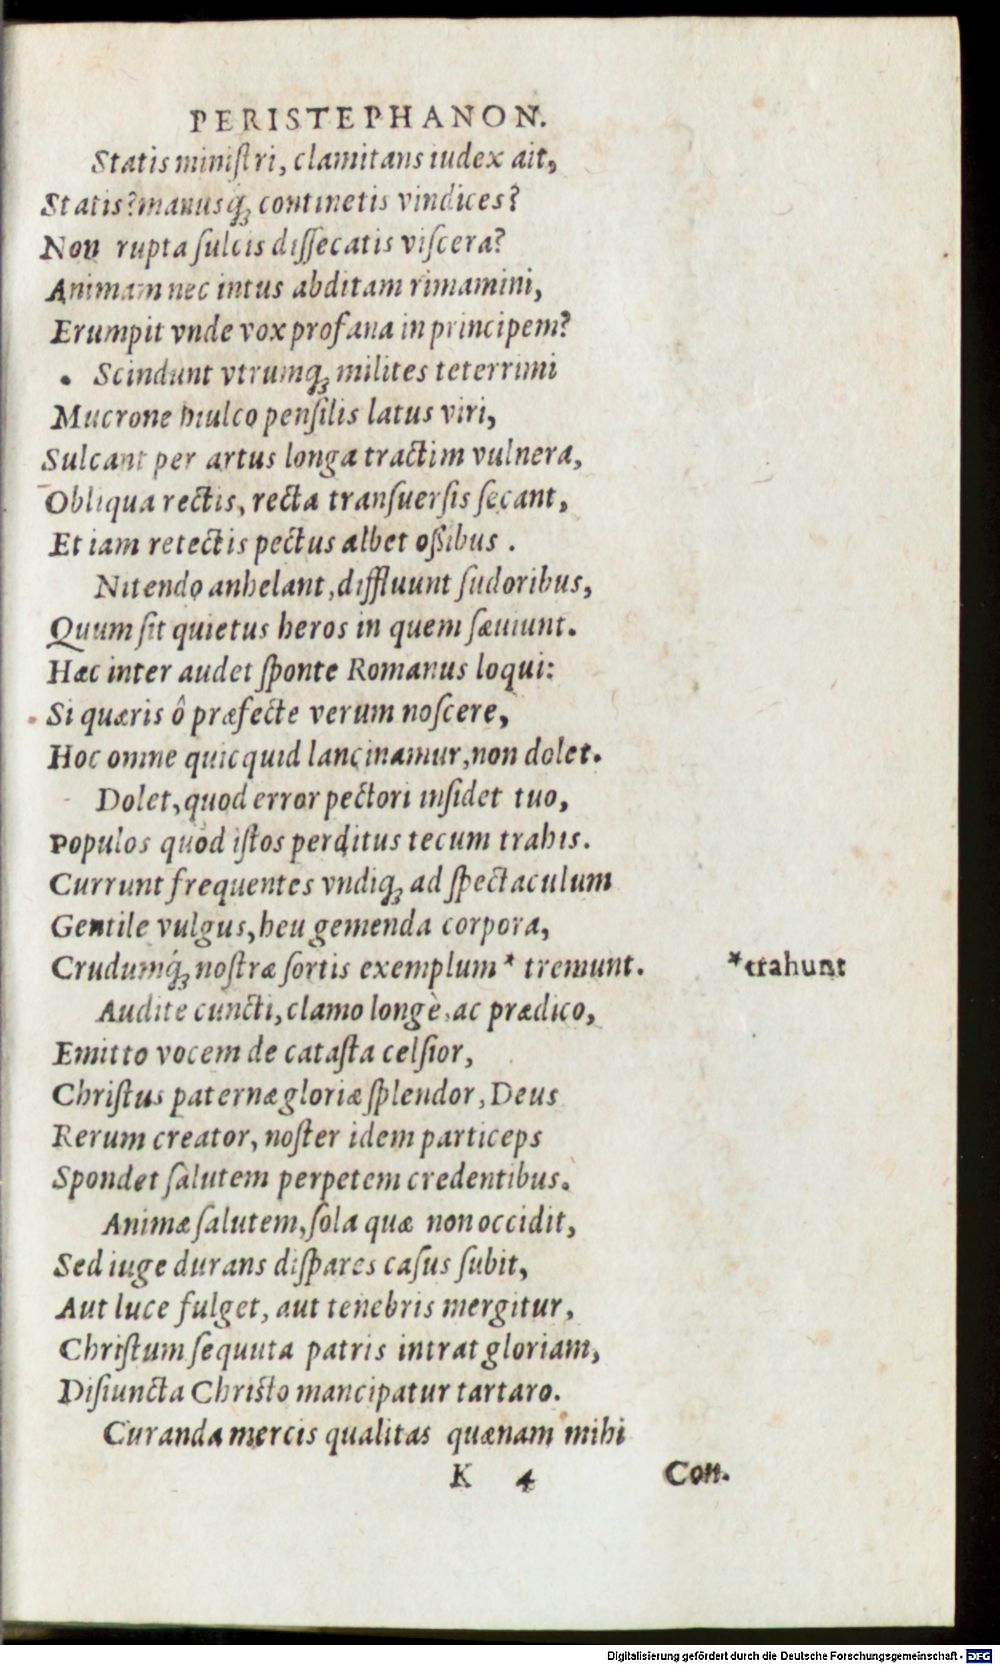 PERISTEPHANON.
Statis ministri, clamitans iudex ait,
Statis? manusq́; continetis vindices?
Non rupta ſulcis diſſecatis viſcera?
Animam nec intus abditam rimamini,
Erumpit vnde vox profana in principem?
Scindunt vtrumq; milites teterrimi
Mucrone hiulco penſilis latus viri,
Sulcant per artus longa tractim vulnera,
Obliqua rectis, recta tranſuerſis ſecant,
Et iam retectis pectus albet oſsibus .
Nitendo anhelant, diffluunt ſudoribus,
Quum ſit quietus heros in quem ſæuiunt.
Hæc inter audet ſponte Romanus loqui:
Si quæris ô præfecte verum noſcere,
Hoc omne quicquid lancinamur, non dolet.
Dolet, quod error pectori inſidet tuo,
Populos quòd iſtos perditus tecum trahis.
Currunt frequentes vndiq; ad ſpectaculum
Gentile vulgus, heu gemenda corpora,
Crudumq́; noſtræ ſortis exemplum * tremunt. *trahunt
Audite cuncti, clamo longè, ac prædico,
Emitto vocem de cataſta celſior,
Chriſtus paternæ gloriæ ſplendor, Deus
Rerum creator, noſter idem particeps
Spondet ſalutem perpetem credentibus.
Animæ ſalutem, ſola quæ non occidit,
Sed iuge durans diſpares caſus ſubit,
Aut luce fulget, aut tenebris mergitur,
Chriſtum ſequuta patris intrat gloriam,
Diſiuncta Chriſto mancipatur tartaro.
Curanda mercis qualitas quænam mihi
K 4 Con.
Digitalisierung gefördert durch die Deutsche Forschungsgemeinschaft - DFG